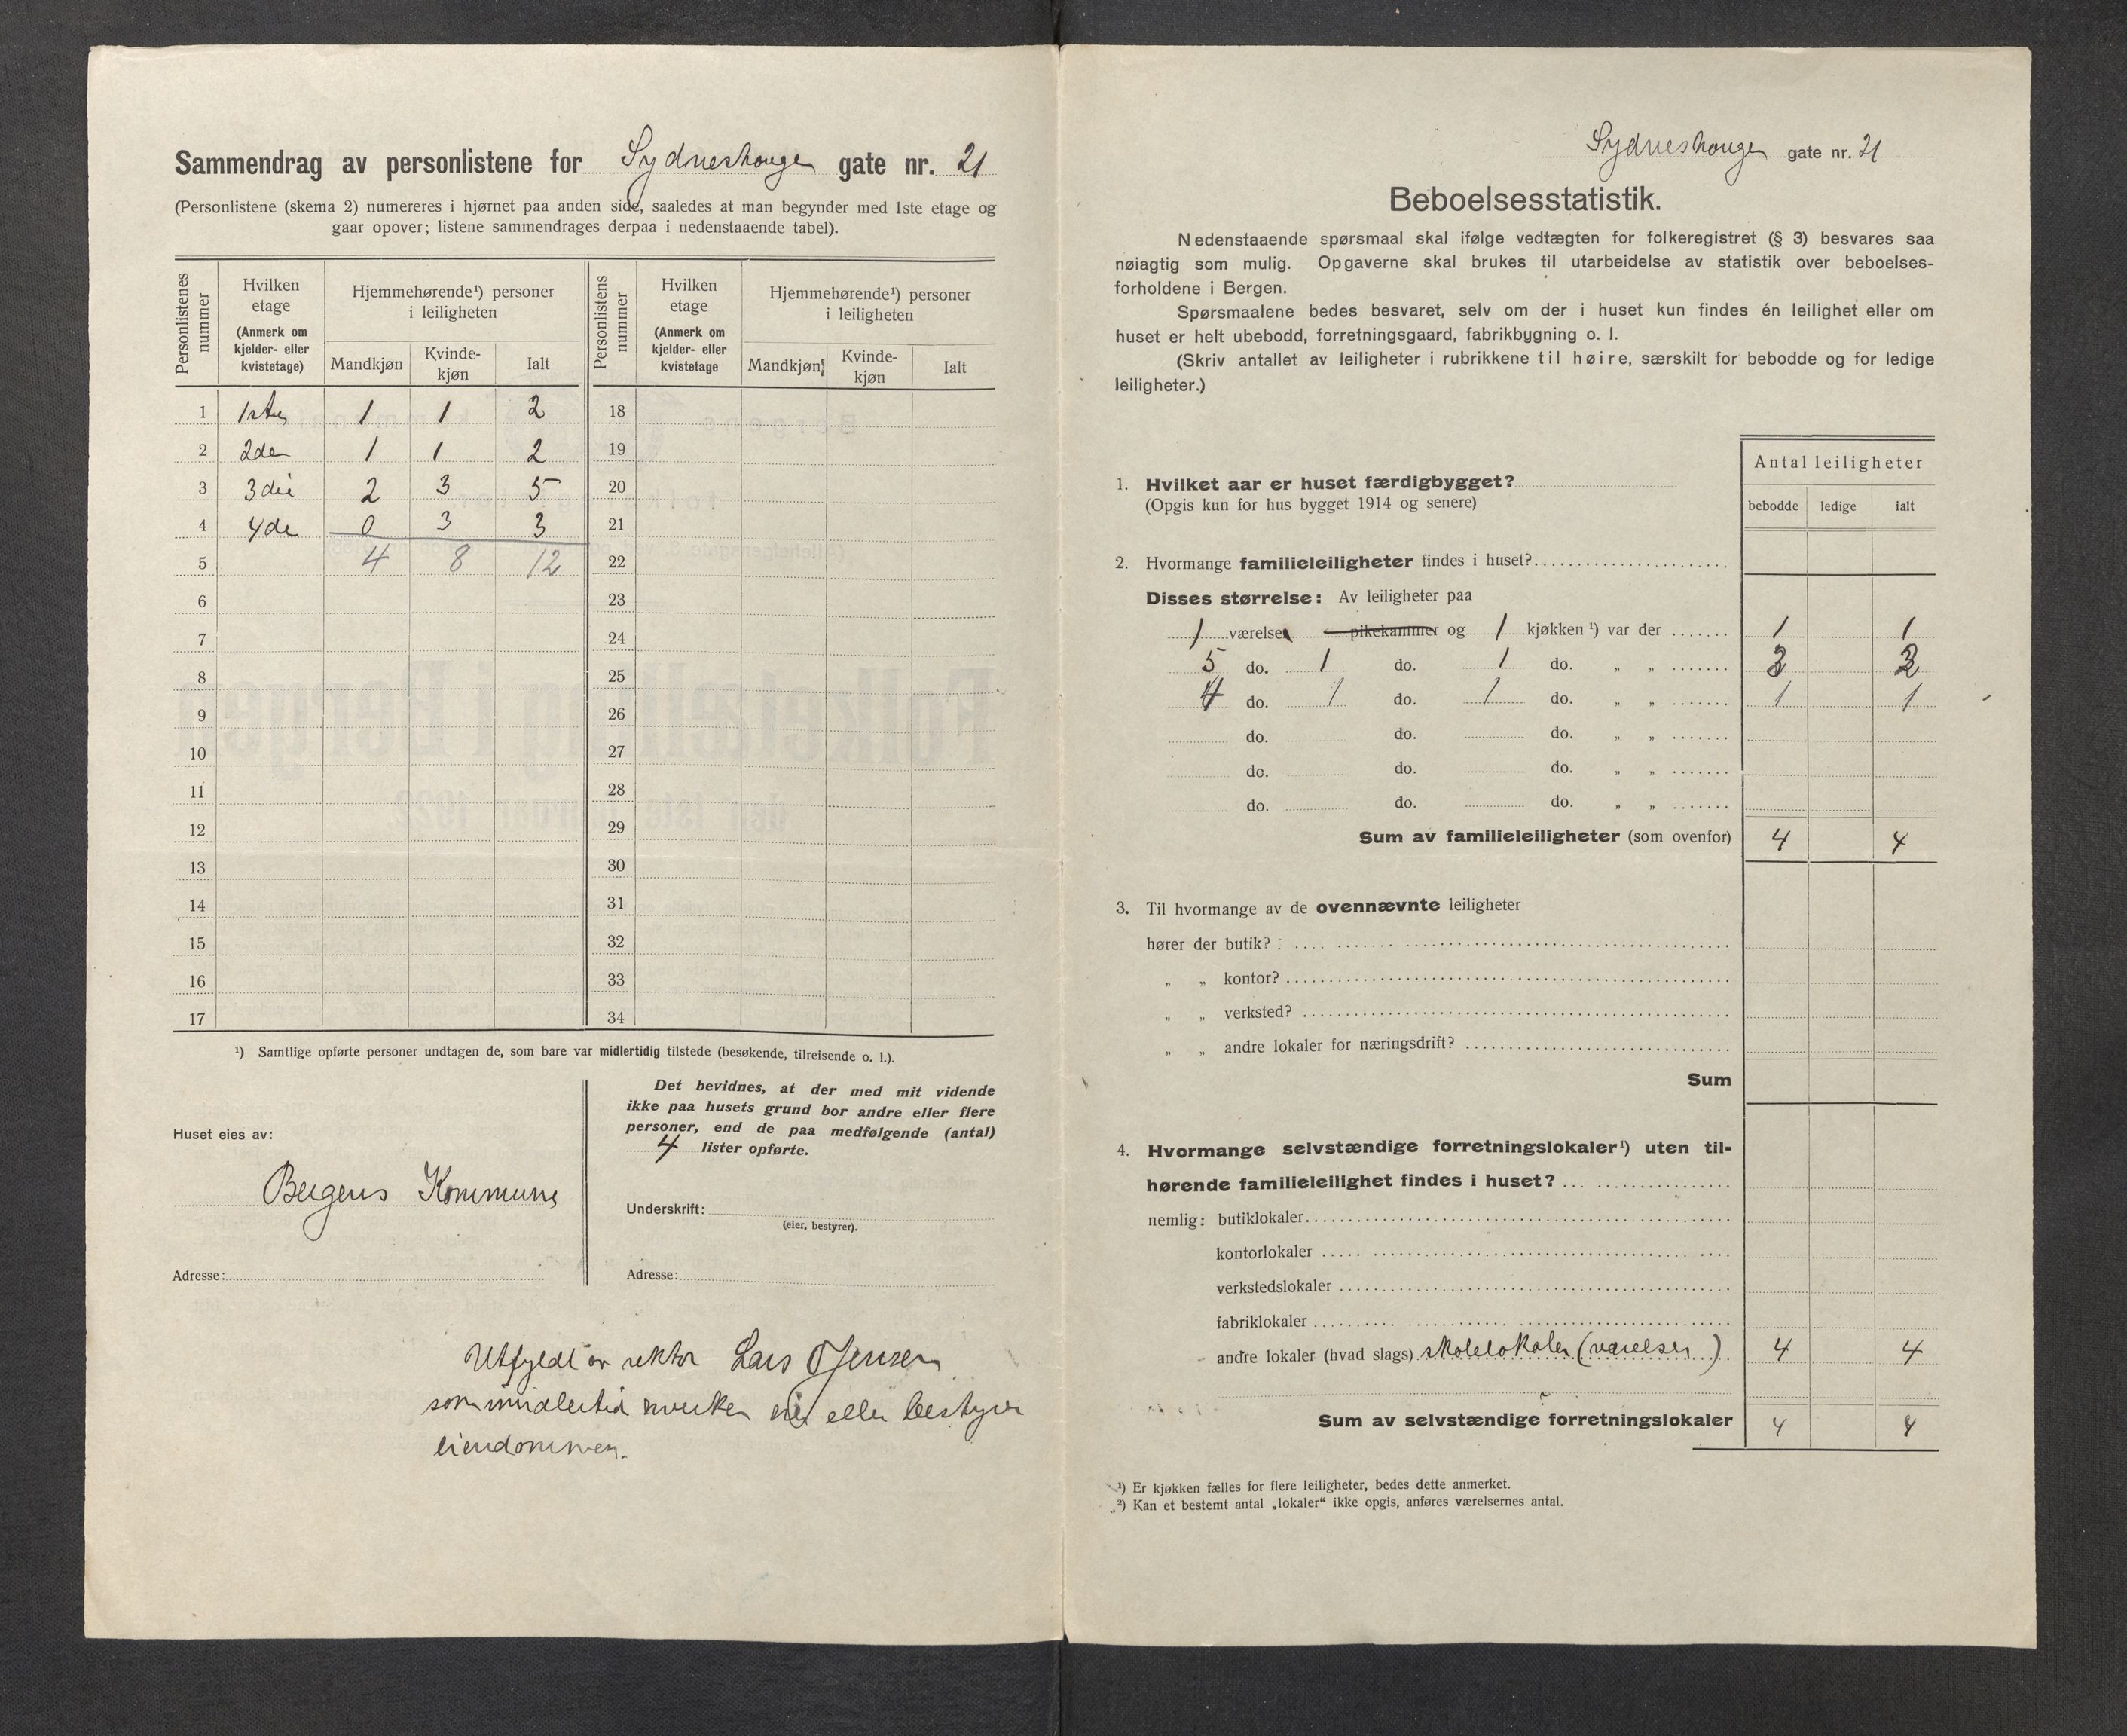 Sammendrag av personlistene for Sydneshaugen gate nr. 21
(Personlistene (skema 2) numereres i hjørnet paa anden side, saaledes at man begynder med 1ste etage og
gaar opover; listene sammendrages derpaa i nedenstaaende tabel).
Personlistenes nummer
Hvilken etage (Anmerk om kjelder- eller kvistetage)
Hjemmehørende¹) personer i leiligheten
Mandkjøn Kvinde-kjøn Ialt
Personlistens nummer
Hvilken etage (Anmerk om kjelder- eller kvistetage
Hjemmehørende¹) personer i leiligheten
Mandkjøn Kvinde-kjøn Ialt
1 1ste 1 1 2 18
2 2den 1 1 2 19
3 3die 2 3 5 20
4 4de 0 3 3 21
5 4 8 12 22
6 23
7 24
8 25
9 26
10 27
11 28
12 29
13 30
14 31
15 32
16 33
17 34
¹) Samtlige opførte personer undtagen de, som bare var midlertidig tilstede (besøkende, tilreisende o. l.).
Huset eies av:
Bergens Kommune
Adresse:
Det bevidnes, at der med mit vidende
ikke paa husets grund bor andre eller flere
personer, end de paa medfølgende (antal)
4 lister opførte.
Underskrift:
(eier, bestyrer).
Adresse:
Utfyldt av rektor Lars O Jensen
som imidlertid hverken eier eller bestyrer
eiendommen.
Sydneshaugen gate nr. 21
Beboelsesstatistik.
Nedenstaaende spørsmaal skal ifølge vedtægten for folkeregistret (§ 3) besvares saa
nøiagtig som mulig. Opgaverne skal brukes til utarbeidelse av statistik over beboelses-
forholdene i Bergen.
Spørsmaalene bedes besvaret, selv om der i huset kun findes én leilighet eller om
huset er helt ubebodd, forretningsgaard, fabrikbygning o. l.
(Skriv antallet av leiligheter i rubrikkene til høire, særskilt for bebodde og for ledige
leiligheter.)
Antal leiligheter
bebodde ledige ialt
1. Hvilket aar er huset færdigbygget?
(Opgis kun for hus bygget 1914 og senere)
2. Hvormange familieleiligheter findes i huset?
Disses størrelse: Av leiligheter paa
1 værelse pikekammer og 1 kjøkken ¹) var der 1 1
5 do. 1 do. 1 do. „ „ 2 2
4 do. 1 do. 1 do. „ „ 1 1
do. do. do. „ „
do. do. do. „ „
do. do. do. „ „
Sum av familieleiligheter (som ovenfor) 4 4
3. Til hvormange av de ovennævnte leiligheter
hører der butik?
„ „ kontor?
„ „ verksted?
„ „ andre lokaler for næringsdrift?
Sum
4. Hvormange selvstændige forretningslokaler¹) uten til-
hørende familieleilighet findes i huset?
nemlig: butiklokaler
kontorlokaler
verkstedslokaler
fabriklokaler
andre lokaler (hvad slags) skolelokaler (værelser) 4 4
Sum av selvstændige forretningslokaler 4 4
¹) Er kjøkken fælles for flere leiligheter, bedes dette anmerket.
²) Kan et bestemt antal „lokaler“ ikke opgis, anføres værelsernes antal.